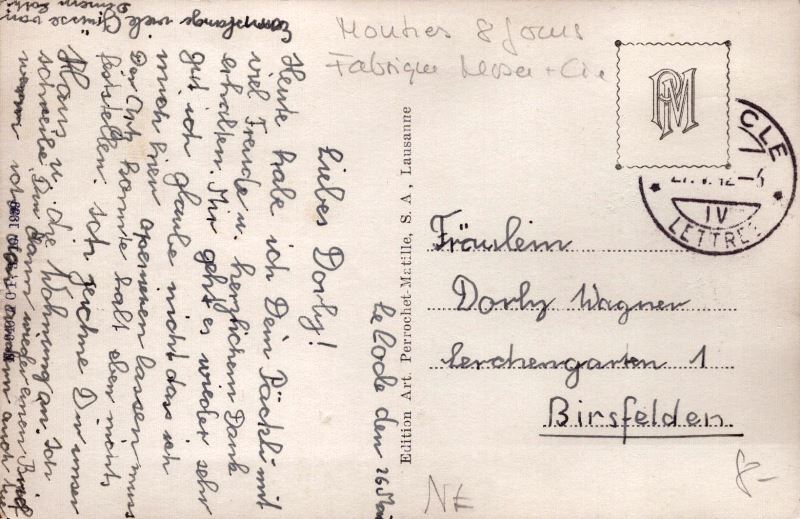 Le Locle den 26 Mai
Liebes Dorly!
Heute habe ich Dein Päckli mit
viel Freude u. herzlichem Dank
erhalten. Mir geht es wieder sehr
gut ich glaube nicht das ich
mich hier operieren lassen muss
Der Arzt konnte halt eben nichts
feststellen. Ich zeichne Dir unser
Haus u. die Wohnung an. Ich
schreibe Dir dann wieder einen Brief
wenn ich
Empfange viele Grüsse von
Deinem
Edition Art. Perrochet-Matille, S. A., Lausanne
Montres 8 jours
Fabrique
PM
CLE
IV
LETTRES
Fräulein
Dorly Wagner
Lerchengarten 1
Birsfelden.
NE
8-